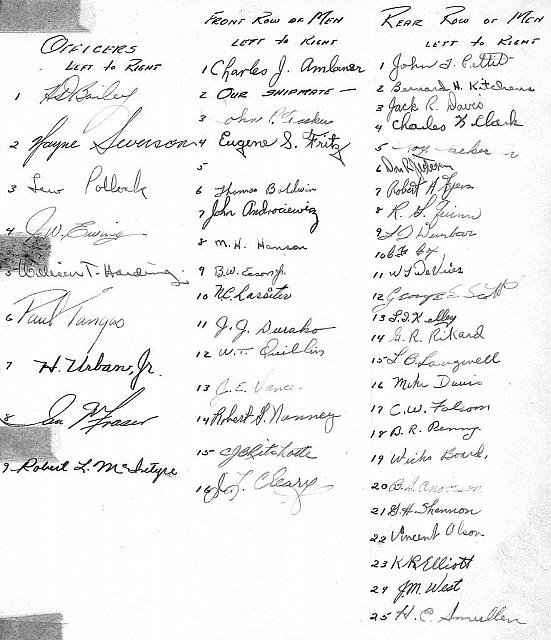 OFFICERS
LEFT TO RIGHT
1 H.D. Bailey
2 Wayne Swenson
3 Lew Pollock
4 J.W. Ewing
5 William T. Harding
6 Paul Tangas
7 H. Urban, Jr.
8 Ian M. Fraser
9. Robert L. McIntyre
FRONT ROW OF MEN
LEFT TO RIGHT
1 Charles J. Ambaner
2 OUR SHIPMATE —
3 John P.
4 Eugene S. Fritz
5
6 Thomas Baldwin
7 John Androciewicz
8 M.H. Hanson
9 B.W. Eason Jr.
10 N.C. Lassiter
11 J.J. Dusako
12 W.T. Quillin
13 J.E. Vance
14 Robert F. Nanney
15
16 J.L. Cleary
REAR ROW OF MEN
LEFT TO RIGHT
1 John J. Pettit
2 Bernard H. Kitchens
3 Jack R. Davis
4 Charles K Clark
5
6 Don R.
7 Robert H. Byers
8 R. G. Quinn
9 L D Dunbar
10
11 W L DeVries
12 George E. Scott
13 L.D. Kelley
14 G. R. Rikard
15 L B Langwell
16 Mike Davis
17 C.W. Folsom
18 B.R. Penny
19 Wicks Board,
20 B.G. Anderson
21 G.H Shannon
22 Vincent Olson
23 K R Elliott
24 J.M. West
25 H. C. Smullen